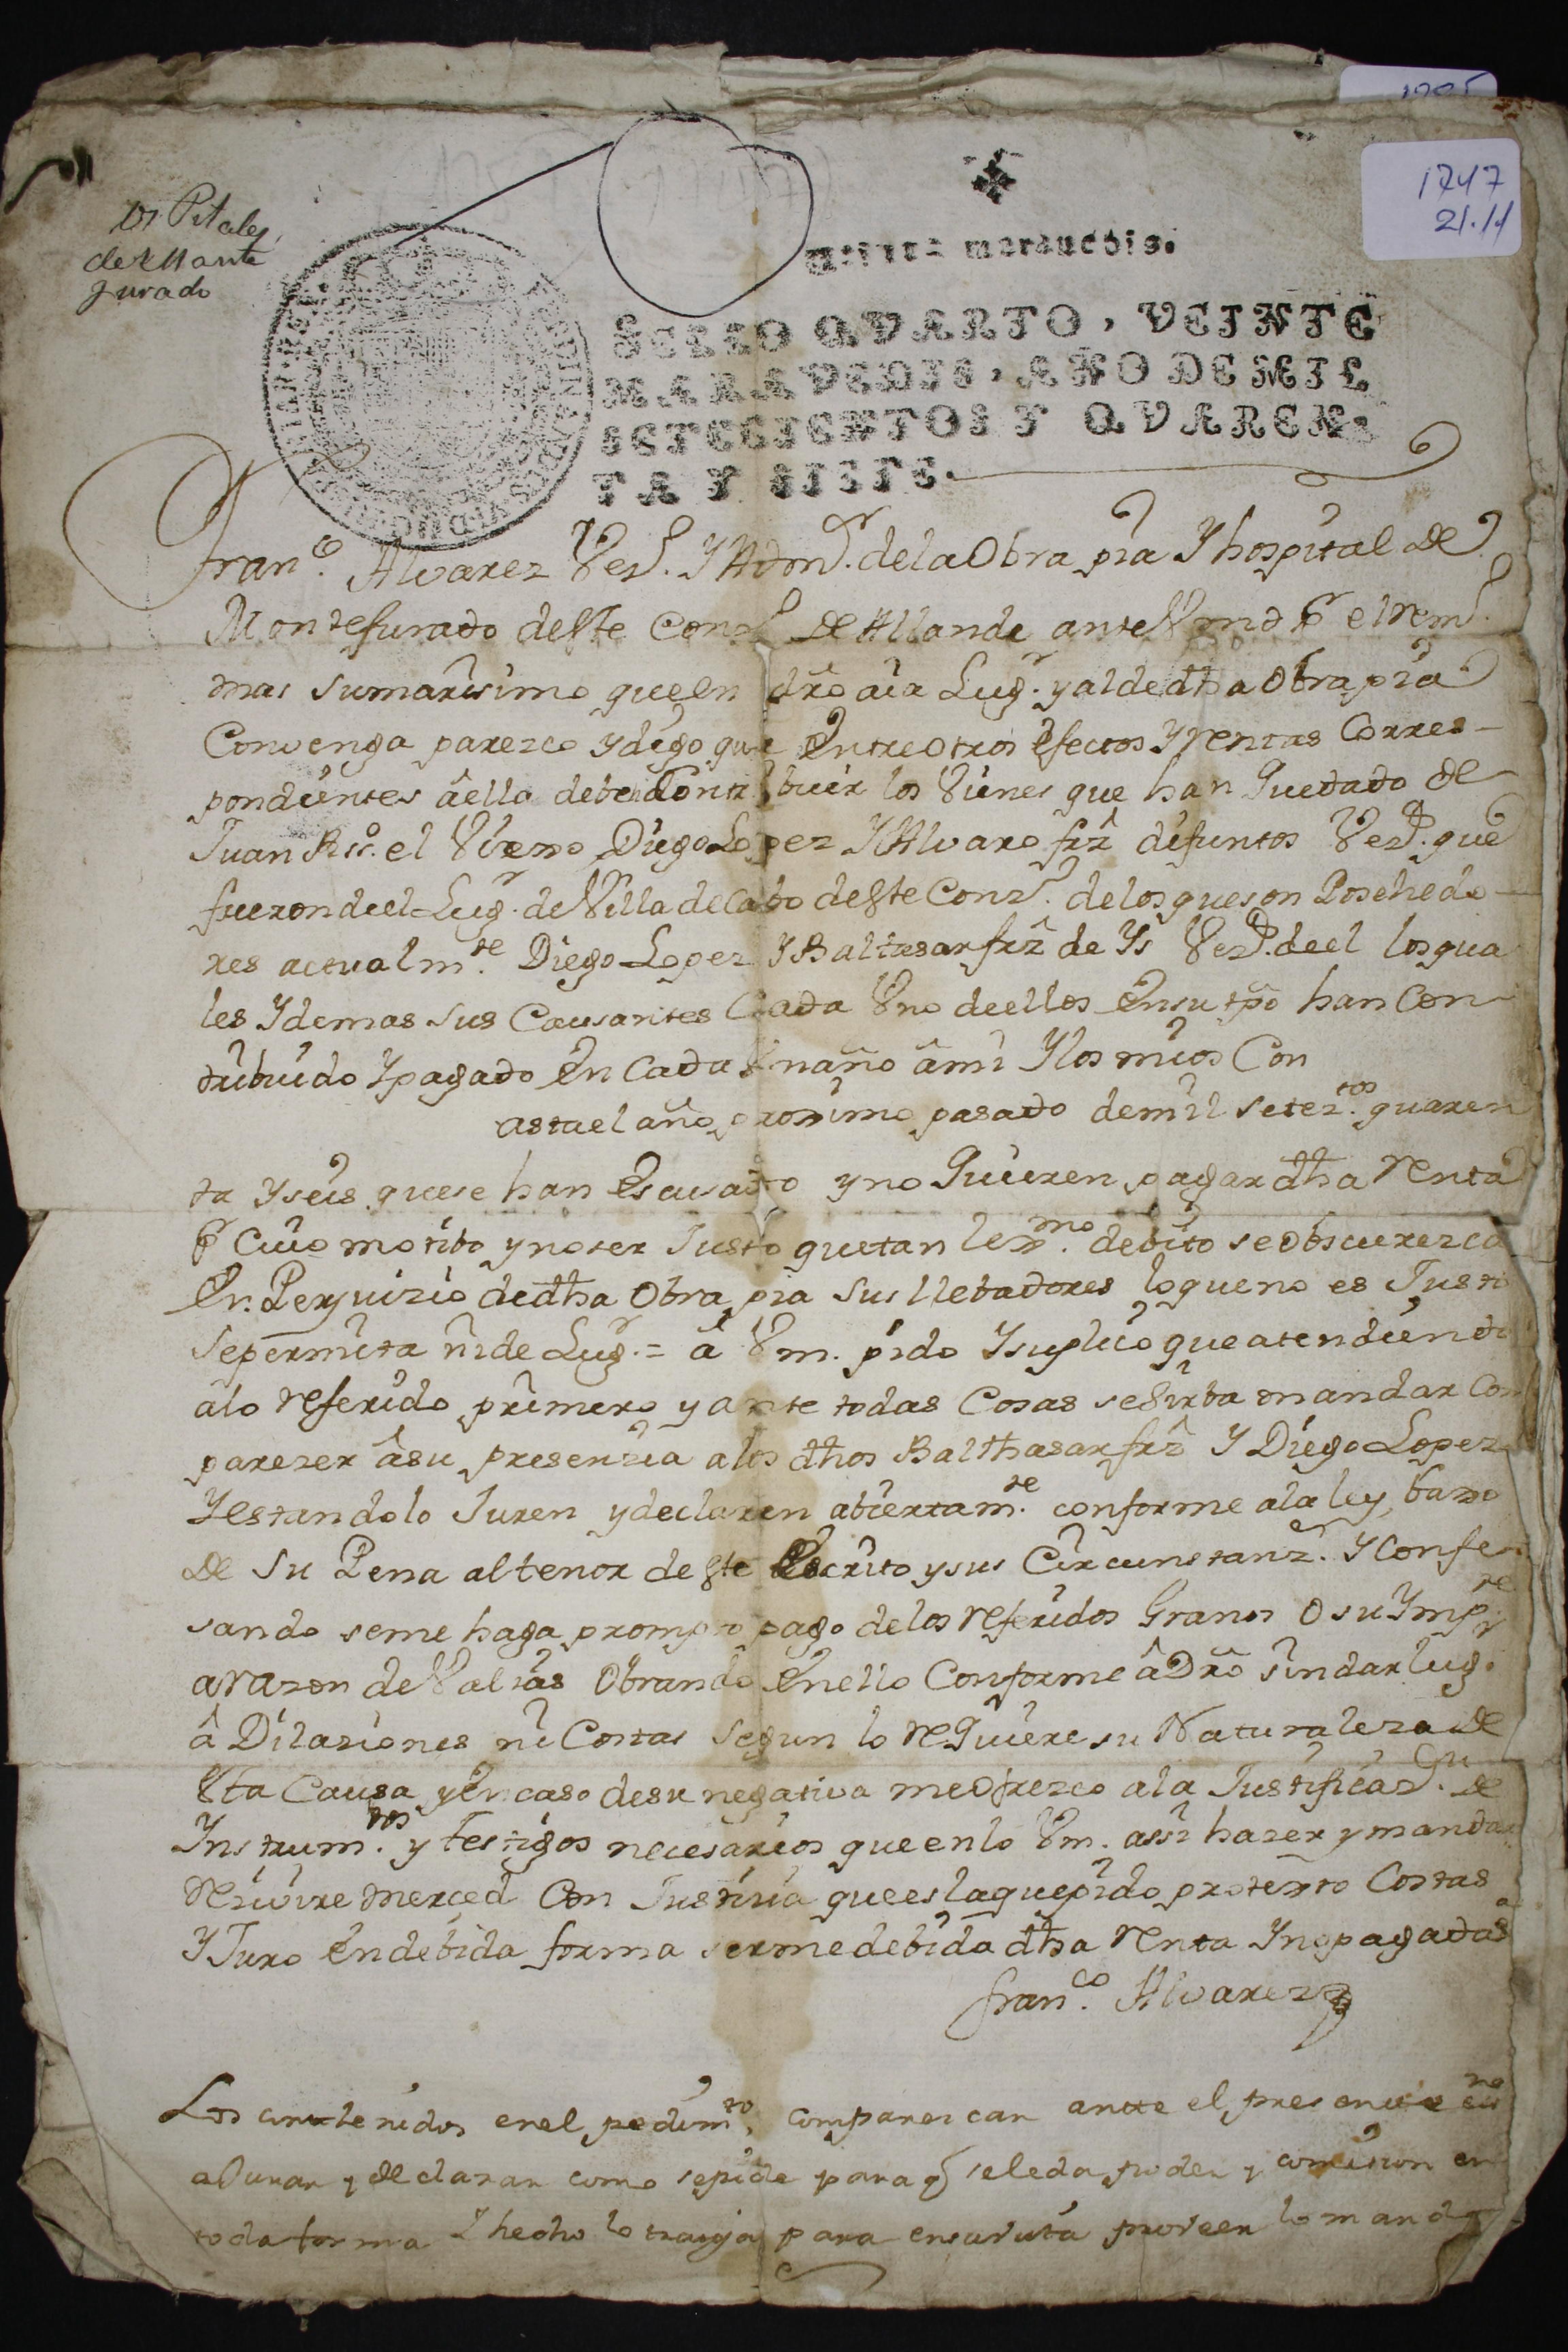 1747
21.11
de Monte
furado
Veinte maravedis.
SELLO QVARTO, VEINTE
MARAVEDIS, AÑO DE MIL
SETECIENTOS Y QVAREN-
TA Y SIETE.
Fran.co Alvarez Vez.o Y Adm.r de la Obra pia Y hospital de
Montefurado deste Conz.o de Allande ante Vmd pr el rem.o
mas sumarisimo que en dro aia Lug.r y al de dha Obra pia
Convenga parezco y digo que Entre otros efectos Y rentas Corres-
pondientes â ella deben Contribuir los Vienes que han Quedado de
Juan Rs.o el Viexo Diego Lopez Y Alvaro frz difuntos Vez.s que
fueron deel Lug.r de Villa de Cabo deste Conz.o de los que son Posehedo-
res actualm.te Diego Lopez Y Baltasar frz de Ys Vez.s deel los qua
les Y demas sus Causantes Cada Uno de ellos En su tpo han Con
tribuido Y pagado En Cada Un año â mi Y los mios Con
asta el año proximo pasado de mil setez.tos quaren
ta Y seis que se han Escusado y no Quieren pagar dha Renta
pr Cuio motibo y no ser Justo que tan lexmo. debito se obscurezca
En Perjuizio de dha Obra pia Sus llebadores lo que no es Justo
Se permita ni de Lug.r = â Vm. pido Y suplico que atendiendo
â lo referido primero y ante todas Cosas se Sirba mandar Com
parezer â su presenzia a los dhos Balthasar frz Y Diego Lopez
Y estandolo Juren y declaren abiertam.te conforme a la ley, baxo
de Su Pena al tenor deste Escrito y sus Circunstanz.s Y Confe-
sando se me haga prompto pago de los referidos Granos O su Ymp.te
a razon de Valias Obrando En ello Conforme â Dro sin dar lug.r
â Dilaziones ni Costas Segun lo reQuiere su Naturaleza de
Sta Causa y En caso de su negativa me ofrezco a la Justificaz.on de
Instrum.tos y testigos necesarios que en lo Vm. assi hazer y mandar
Rezivire merced Con Justizia que es la que pido protexto Costas
Y Juro En debida forma serme debida dha Renta Y no pagada
fran.co Alvarez
Los contenidos en el pedim.to comparezcan antte el presentte essno
a Jurar y declarar como se pide para q se le da poder y comision en
toda forma Y hecho lo traiga para en su vista proveer lo mando